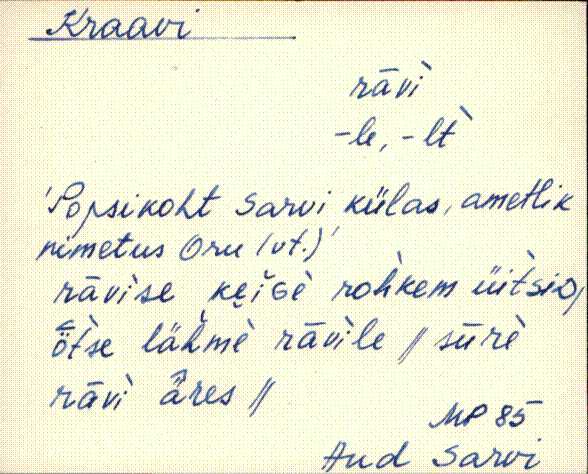 Kraavi
rāvì
-le, -lt̀
'Popsikoht Sarvi külas, ametlik
nimetus Oru (vt.)'
rāvìse keiGè rohkem üìtsiD,
ȫtse lähmè rāvìle // sūrè
rāvì äres //
MP 85
Aud Sarvi